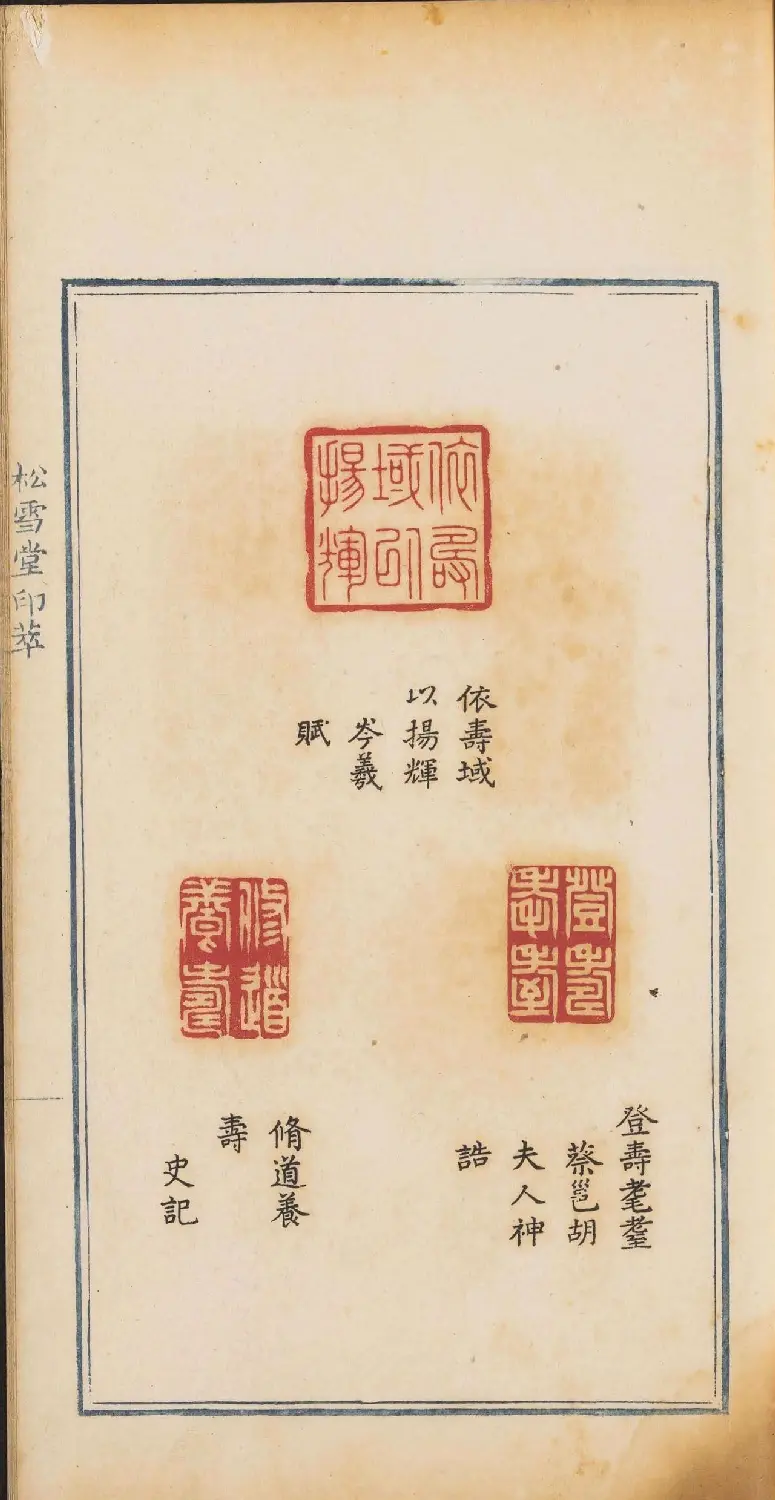 依壽
域以
揚輝
依壽域
以揚輝
岑羲
賦
登壽
耄耋
登壽耄耋
蔡邕胡
夫人神
誥
脩道
養壽
脩道養
壽
史記
松雪堂印萃